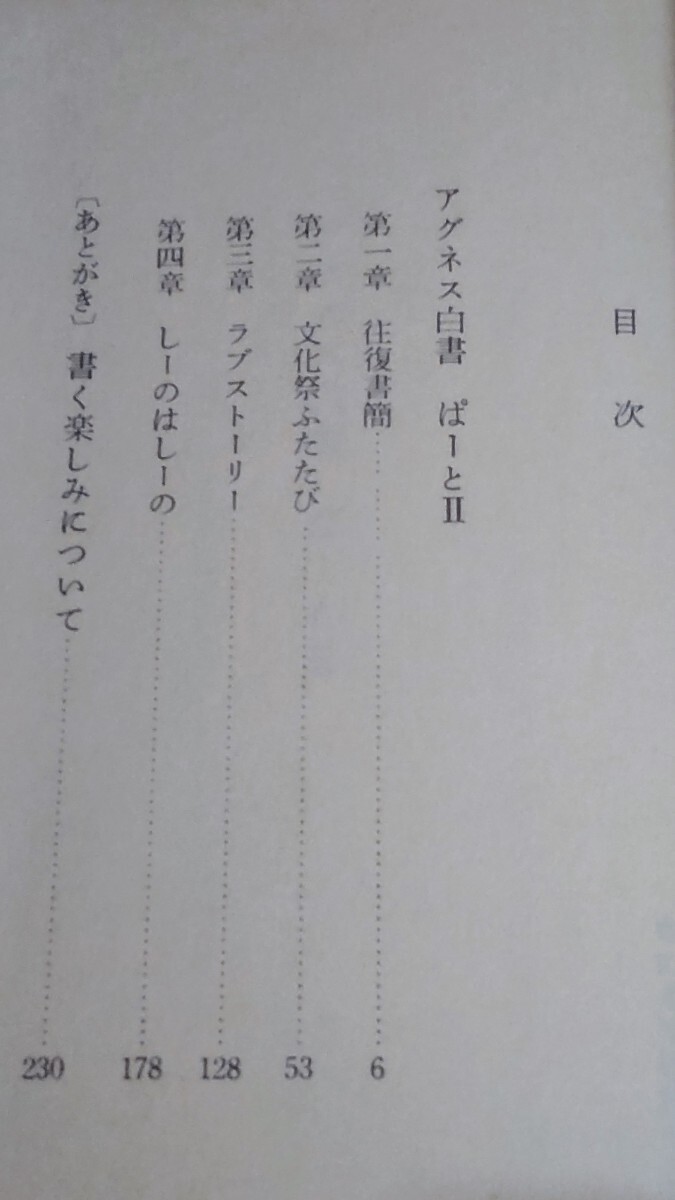 目次
アグネス白書 ぱーとⅡ
第一章 往復書簡……………………6
第二章 文化祭ふたたび……………………53
第三章 ラブストーリー……………………128
第四章 しーのはしーの……………………178
〔あとがき〕 書く楽しみについて……………………230